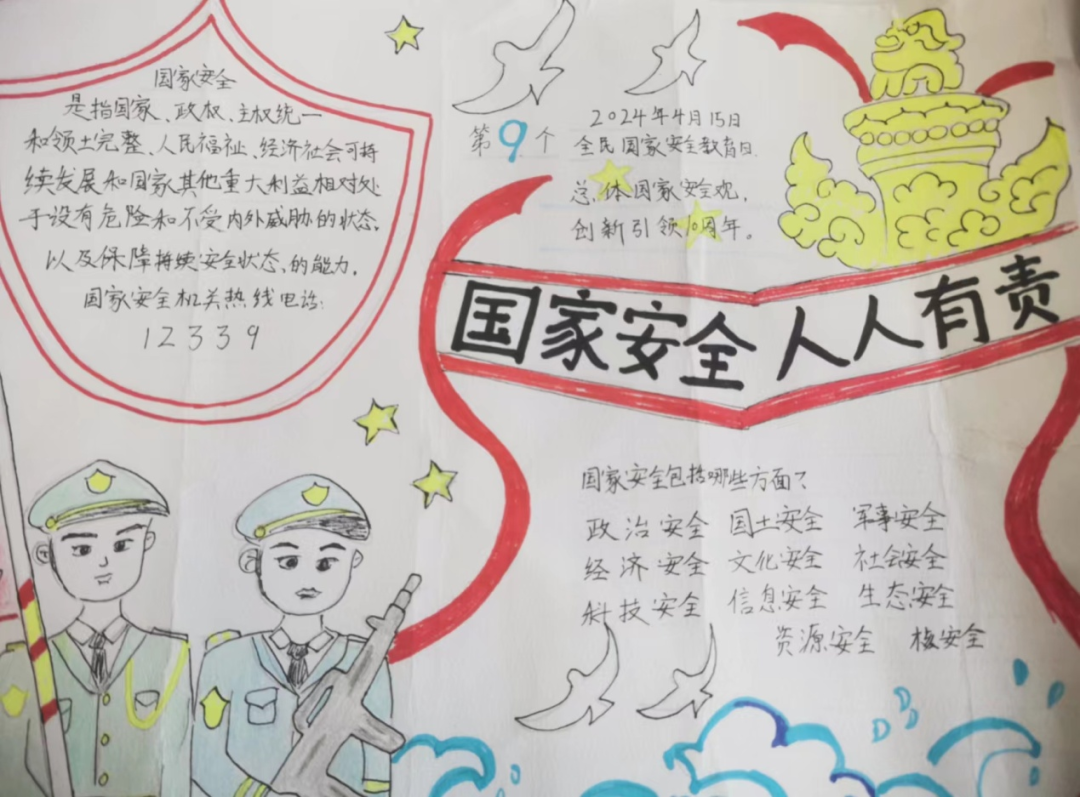 国家安全
是指国家、政权、主权统一
和领土完整、人民福祉、经济社会可持
续发展和国家其他重大利益相对处
于设有危险和不受内外威胁的状态,
以及保障持续安全状态的能力.
国家安全机关热线电话:
12339
第9个
2024年4月15日
全民国家安全教育日
总体国家安全观,
创新引领10周年。
国家安全人人有责
国家安全包括哪些方面?
政治安全 国土安全 军事安全
经济安全 文化安全 社会安全
科技安全 信息安全 生态安全
资源安全 核安全